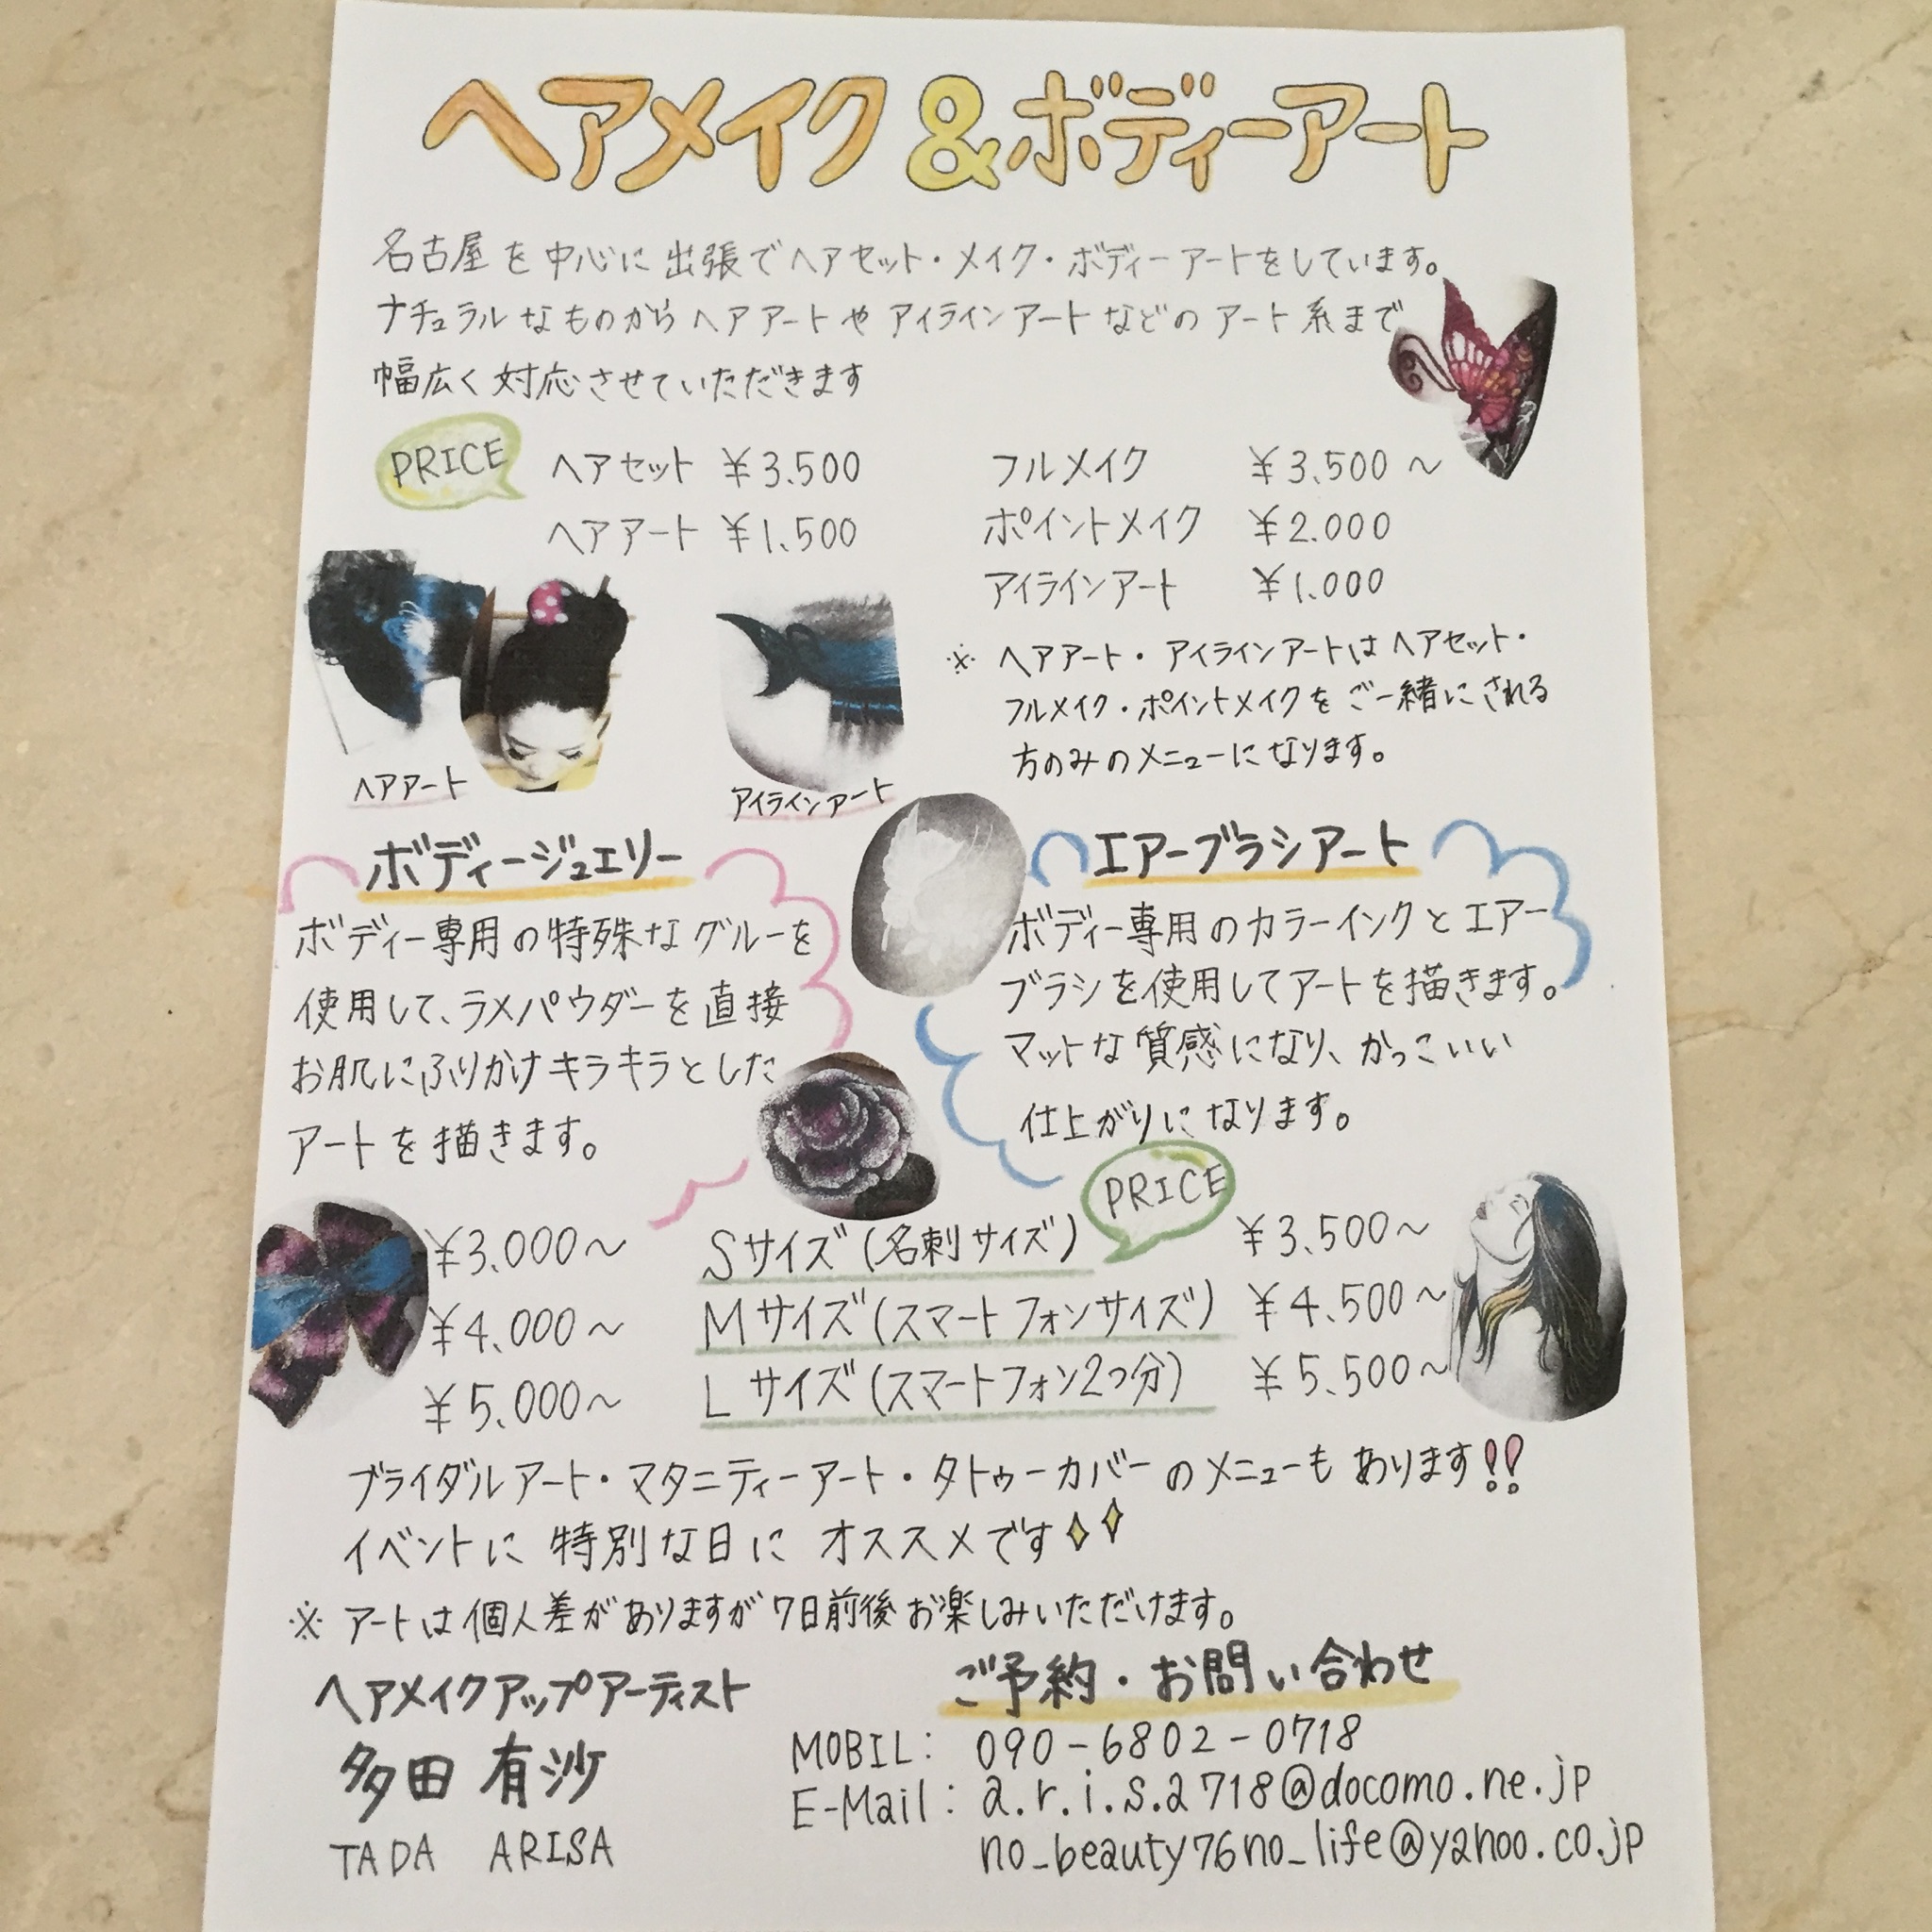 ヘアメイク&ボディーアート
名古屋を中心に出張でヘアセット・メイク・ボディーアートをしています。
ナチュラルなものからヘアアートやアイラインアートなどのアート系まで
幅広く対応させていただきます
PRICE
ヘアセット ¥3.500
ヘアアート ¥1.500
フルメイク ¥3.500～
ポイントメイク ¥2.000
アイラインアート ¥1.000
※ ヘアアート・アイラインアートはヘアセット・
フルメイク・ポイントメイクをご一緒にされる
方のみのメニューになります。
ヘアアート
アイラインアート
ボディージュエリー
ボディー専用の特殊なグルーを
使用して、ラメパウダーを直接
お肌にふりかけキラキラとした
アートを描きます。
エアーブラシアート
ボディー専用のカラーインクとエアー
ブラシを使用してアートを描きます。
マットな質感になり、かっこいい
仕上がりになります。
PRICE
¥3.000～ Sサイズ(名刺サイズ) ¥3.500～
¥4.000～ Mサイズ(スマートフォンサイズ) ¥4.500～
¥5.000～ Lサイズ(スマートフォン2つ分) ¥5.500～
ブライダルアート・マタニティーアート・タトゥーカバーのメニューもあります!!
イベントに特別な日にオススメです
※ アートは個人差がありますが7日前後お楽しみいただけます。
ヘアメイクアップアーティスト
多田 有沙
TADA ARISA
ご予約・お問い合わせ
MOBIL: 090-6802-0718
E-Mail: a.r.i.s.a718@docomo.ne.jp
no_beauty76no_life@yahoo.co.jp